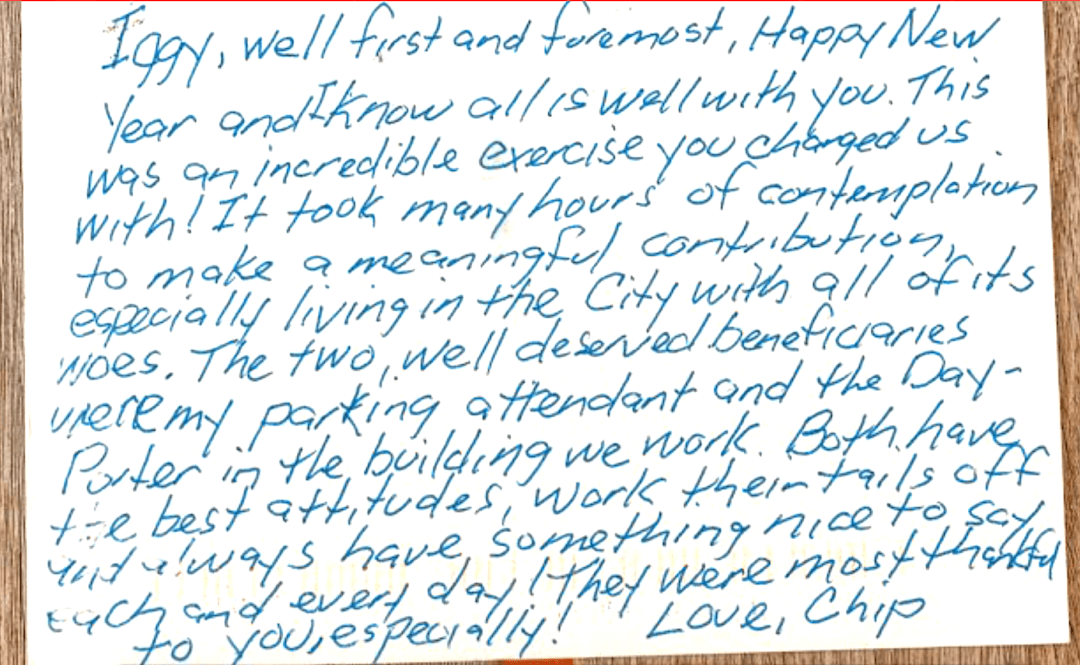 Iggy, well first and foremost, Happy New
Year and I know all is well with you. This
was an incredible exercise you charged us
with! It took many hours of contemplation
to make a meaningful contribution,
especially living in the City with all of its
woes. The two, well deserved beneficiaries
were my parking attendant and the Day-
Porter in the building we work. Both have
the best attitudes, work their tails off
and always have something nice to say
each and every day! They were most thankful
to you, especially! Love, Chip